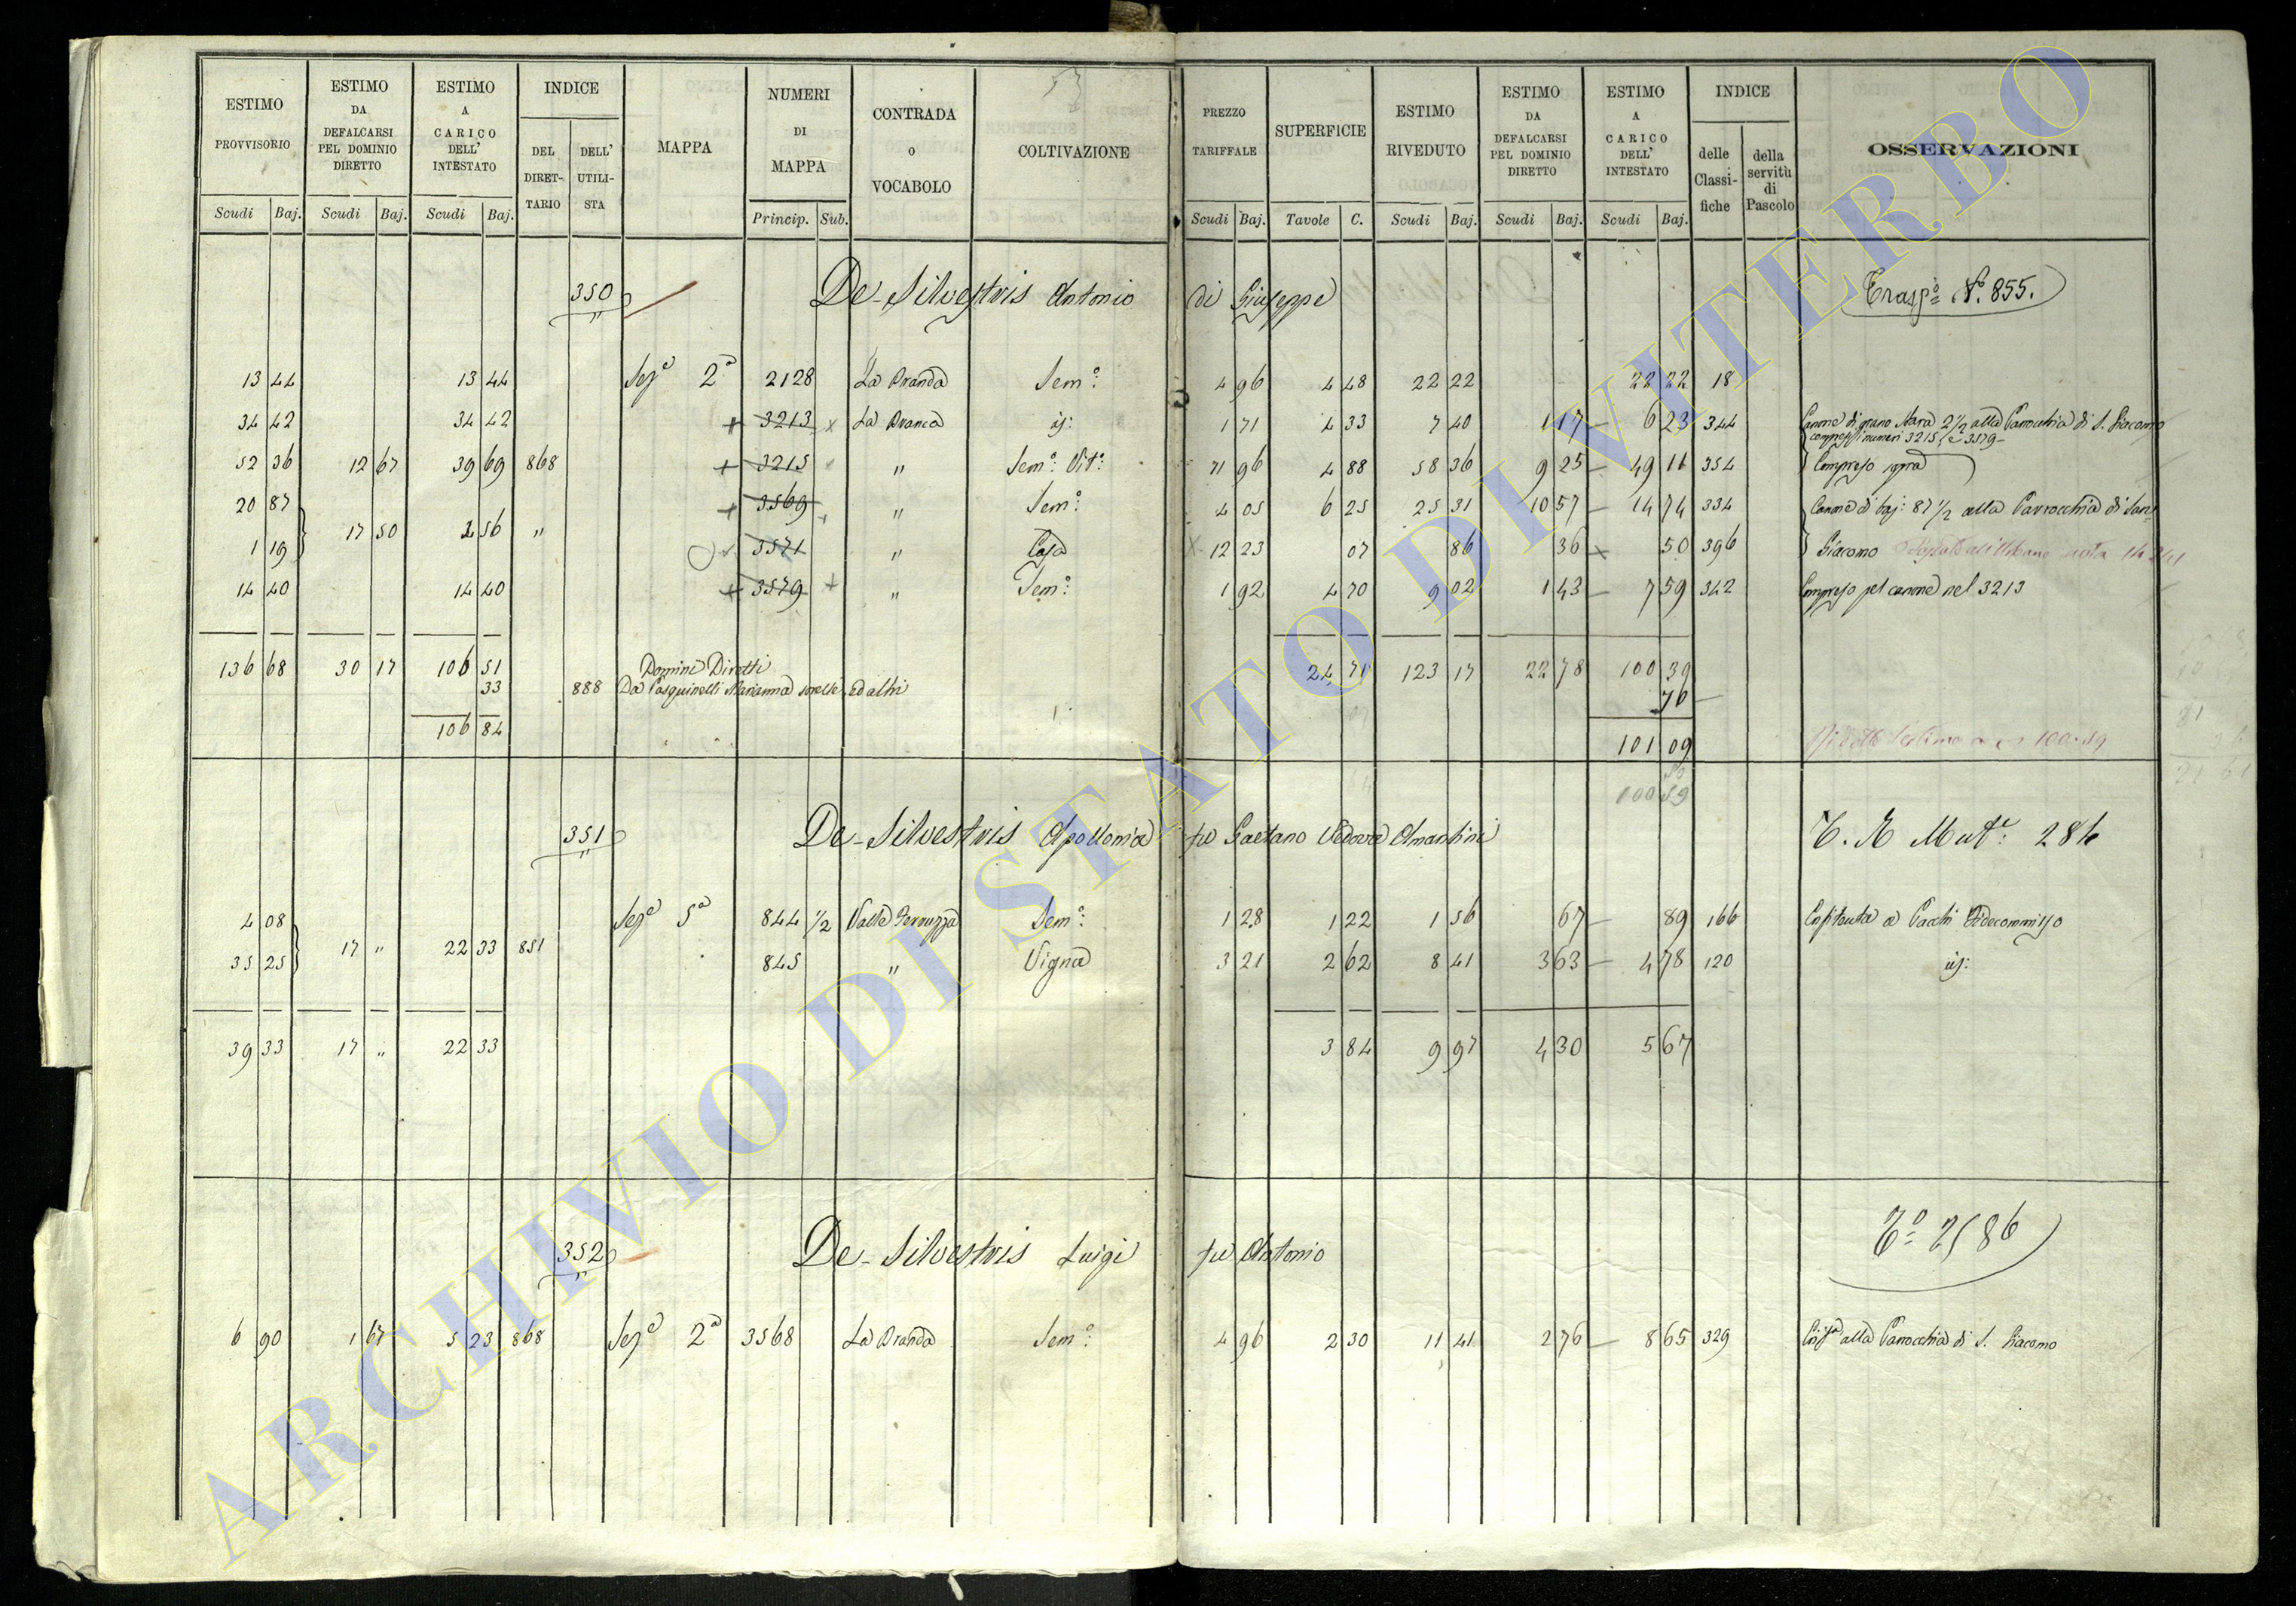 53
ESTIMO PROVVISORIO Scudi Baj. | ESTIMO DA DEFALCARSI PEL DOMINIO DIRETTO Scudi Baj. | ESTIMO A CARICO DELL' INTESTATO Scudi Baj. | INDICE DEL DIRET-TARIO | DELL' UTILI-STA | MAPPA | NUMERI DI MAPPA Princip. Sub. | CONTRADA O VOCABOLO | COLTIVAZIONE | PREZZO TARIFFALE Scudi Baj. | SUPERFICIE Tavole C. | ESTIMO RIVEDUTO Scudi Baj. | ESTIMO DA DEFALCARSI PEL DOMINIO DIRETTO Scudi Baj. | ESTIMO A CARICO DELL' INTESTATO Scudi Baj. | INDICE delle Classi-fiche | della servitù di Pascolo | OSSERVAZIONI
350 De-Silvestris Antonio di Giuseppe Trasp.o N.o 855.
13 44 | 13 44 | Sez.e 2a | 2128 | La Branda | Sem.o: | 4 96 | 4 48 | 22 22 | 22 22 | 18
34 42 | 34 42 | 3213 | La Branca | id: | 1 71 | 4 33 | 7 40 | 1 17 | 6 23 | 344 | Canone di grano 2 1/2 alla Parrocchia di S. Giacomo
compresi i numeri 3215, e 3579
52 36 | 12 67 | 39 69 | 868 | 3215 | " | Sem.o: Vit.o: | 11 96 | 4 88 | 58 36 | 9 25 | 49 11 | 354 | Compreso sopra
20 87 | 3569 | " | Sem.o: | 4 05 | 6 25 | 25 31 | 10 57 | 14 74 | 334 | Canone di baj: 87 1/2 alla Parrocchia di San
17 50 | 56 | "
1 19 | 3571 | " | Casa | 12 23 | 07 | 86 | 36 | 50 | 396 | Giacomo
14 40 | 14 40 | 3579 | " | Sem.o: | 1 92 | 4 70 | 9 02 | 1 43 | 7 59 | 342 | Compreso pel canone nel 3213
136 68 | 30 17 | 106 51 | Domini Diretti | 24 71 | 123 17 | 22 78 | 100 39
33 | 888 | Da Pasquinelli Marianna sorelle, ed altri | 70
106 84 | 101 09 | 100:59
50
100 59
351 De-Silvestris Apollonia fu Gaetano Vedova Amantini T. N Mut.e: 284
4 08 | Sez.e 5a | 844 1/2 | Valle Perruzza | Sem.o: | 1 28 | 1 22 | 1 56 | 67 | 89 | 166 | Enfiteuta a Pacchi Fidecommisso
17 " | 22 33 | 851
35 25 | 845 | " | Vigna | 3 21 | 2 62 | 8 41 | 3 63 | 4 78 | 120 | id:
39 33 | 17 " | 22 33 | 3 84 | 9 97 | 4 30 | 5 67
352 De-Silvestris Luigi fu Antonio T.o 2186
6 90 | 1 67 | 5 23 | 868 | Sez.e 2a | 3568 | La Branda | Sem.o: | 4 96 | 2 30 | 11 41 | 2 76 | 8 65 | 329 | alla Parrocchia di S. Giacomo
ARCHIVIO DI STATO DI VITERBO